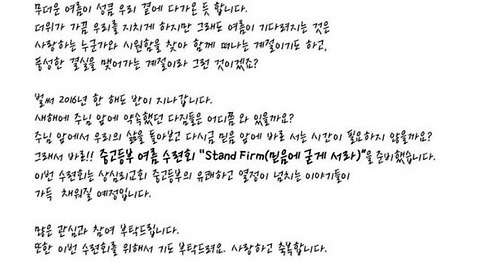 무더운 여름이 성큼 우리 곁에 다가온 듯 합니다.
더위가 가끔 우리를 지치게 하지만 그래도 여름이 기다려지는 것은
사랑하는 누군가와 시원함을 찾아 함께 떠나는 계절이기도 하고,
풍성한 결실을 맺어가는 계절이라 그런 것이겠죠?
벌써 2016년 한 해도 반이 지나갑니다.
새해에 주님 앞에 약속했던 다짐들은 어디쯤 와 있을까요?
주님 앞에서 우리의 삶을 돌아보고 다시금 믿음 앞에 바로 서는 시간이 필요하지 않을까요?
그래서 바로!! 중고등부 여름 수련회 "Stand Firm(믿음에 굳게 서라)"을 준비했습니다.
이번 수련회는 상심리교회 중고등부의 유쾌하고 열정이 넘치는 이야기들이
가득 채워질 예정입니다.
많은 관심과 참여 부탁드립니다.
또한 이번 수련회를 위해서 기도 부탁드려요. 사랑하고 축복합니다.